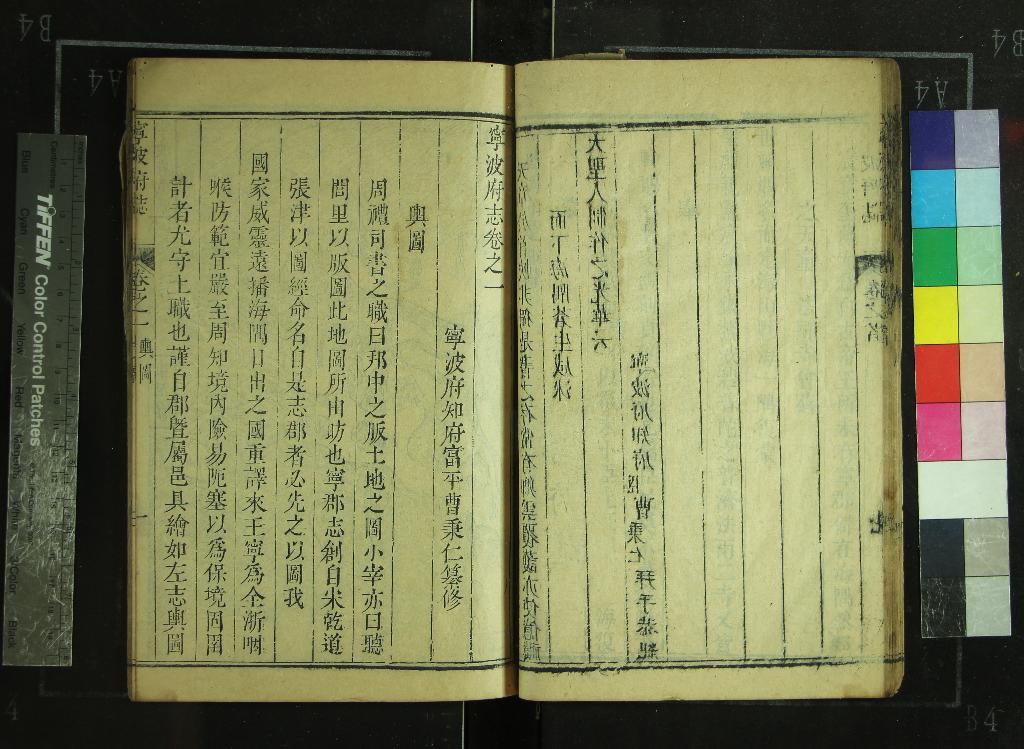 而下海隅蒼生咸沐
大聖人制作之光華云
寧波府知府臣曹秉仁拜手恭紀
寧波府志卷之一
寧波府知府富平曹秉仁纂修
輿圖
周禮司書之職曰邦中之版土地之圖小宰亦曰聽
閭里以版圖此地圖所由昉也寧郡志創自宋乾道
張津以圖經命名自是志郡者必先之以圖我
國家威靈遠播海隅日出之國重譯來王寧為全浙咽
喉防範宜嚴至周知境內險易阨塞以為保境固圉
計者尤守土職也謹自郡暨屬邑具繪如左志輿圖
寧波府誌
卷之一
輿圖
一
TIFFEN Color Control Patches
Blue
Cyan
Green
Yellow
Red
Magenta
White
3/Color
Black
Inches
Centimetres
B4
A4
B4
A4
4
B4